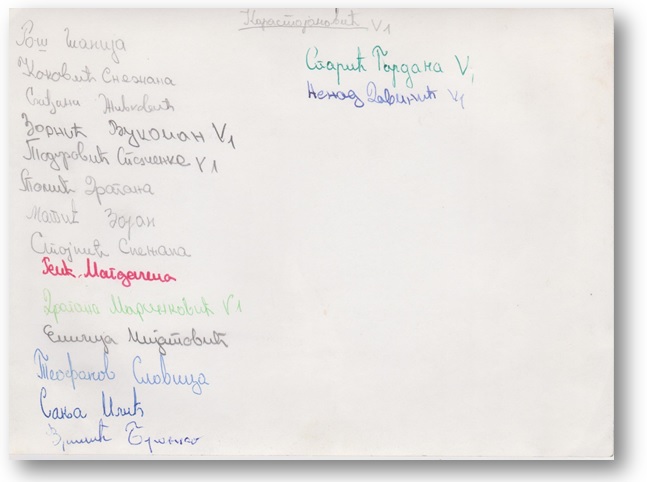 Карастојановић V1
Рош Шанија
Коковић Снежана
Живковић
Зорнић Вукоман V1
Тодоровић Стаменка V1
Томић Драгана
Матић Зоран
Стојнић Снежана
Магдалена
Драгана Маринковић V1
Емилија Мијатовић
Теофанов Славица
Сања Илић
Старић Гордана V1
Ненад Давинић V1